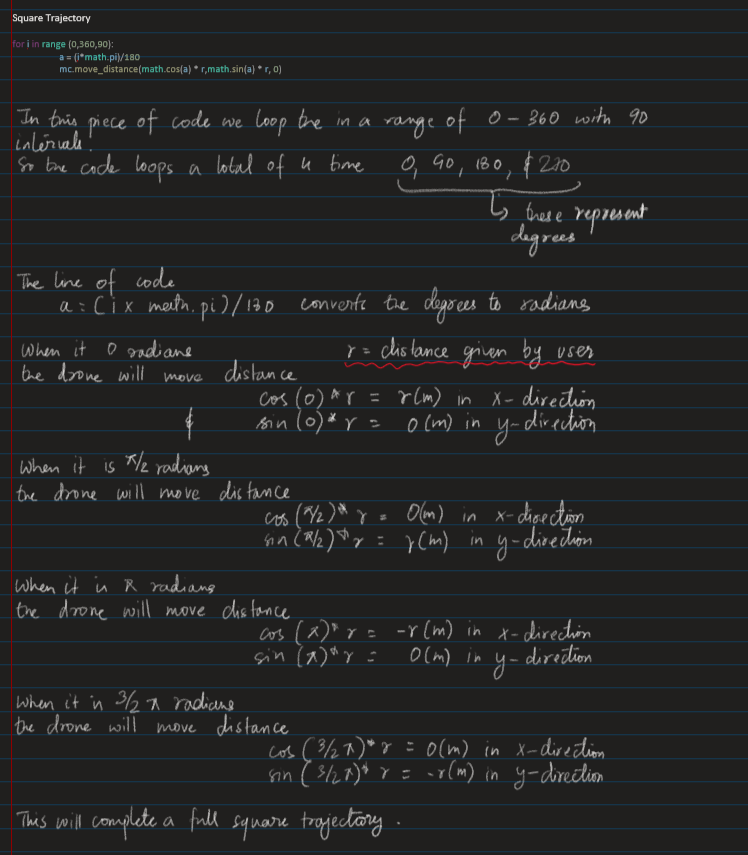 Square Trajectory
for i in range (0,360,90):
a = (i*math.pi)/180
mc.move_distance(math.cos(a) * r,math.sin(a) * r, 0)
In this piece of code we loop the in a range of 0 - 360 with 90
intervals.
So the code loops a total of 4 time 0, 90, 180, & 270
↳ these represent
degrees
The line of code
a = (i x math.pi)/180 converts the degrees to radians
When it 0 radians r = distance given by user
the drone will move distance
cos (0) * r = r(m) in x-direction
& sin (0) * r = 0(m) in y-direction
When it is π/2 radians
the drone will move distance
cos (π/2) * r = 0(m) in x-direction
sin (π/2) * r = r(m) in y-direction
When it is π radians
the drone will move distance
cos (π) * r = -r(m) in x-direction
sin (π) * r = 0(m) in y-direction
When it is 3/2 π radians
the drone will move distance
cos (3/2 π) * r = 0(m) in x-direction
sin (3/2 π) * r = -r(m) in y-direction
This will complete a full square trajectory.